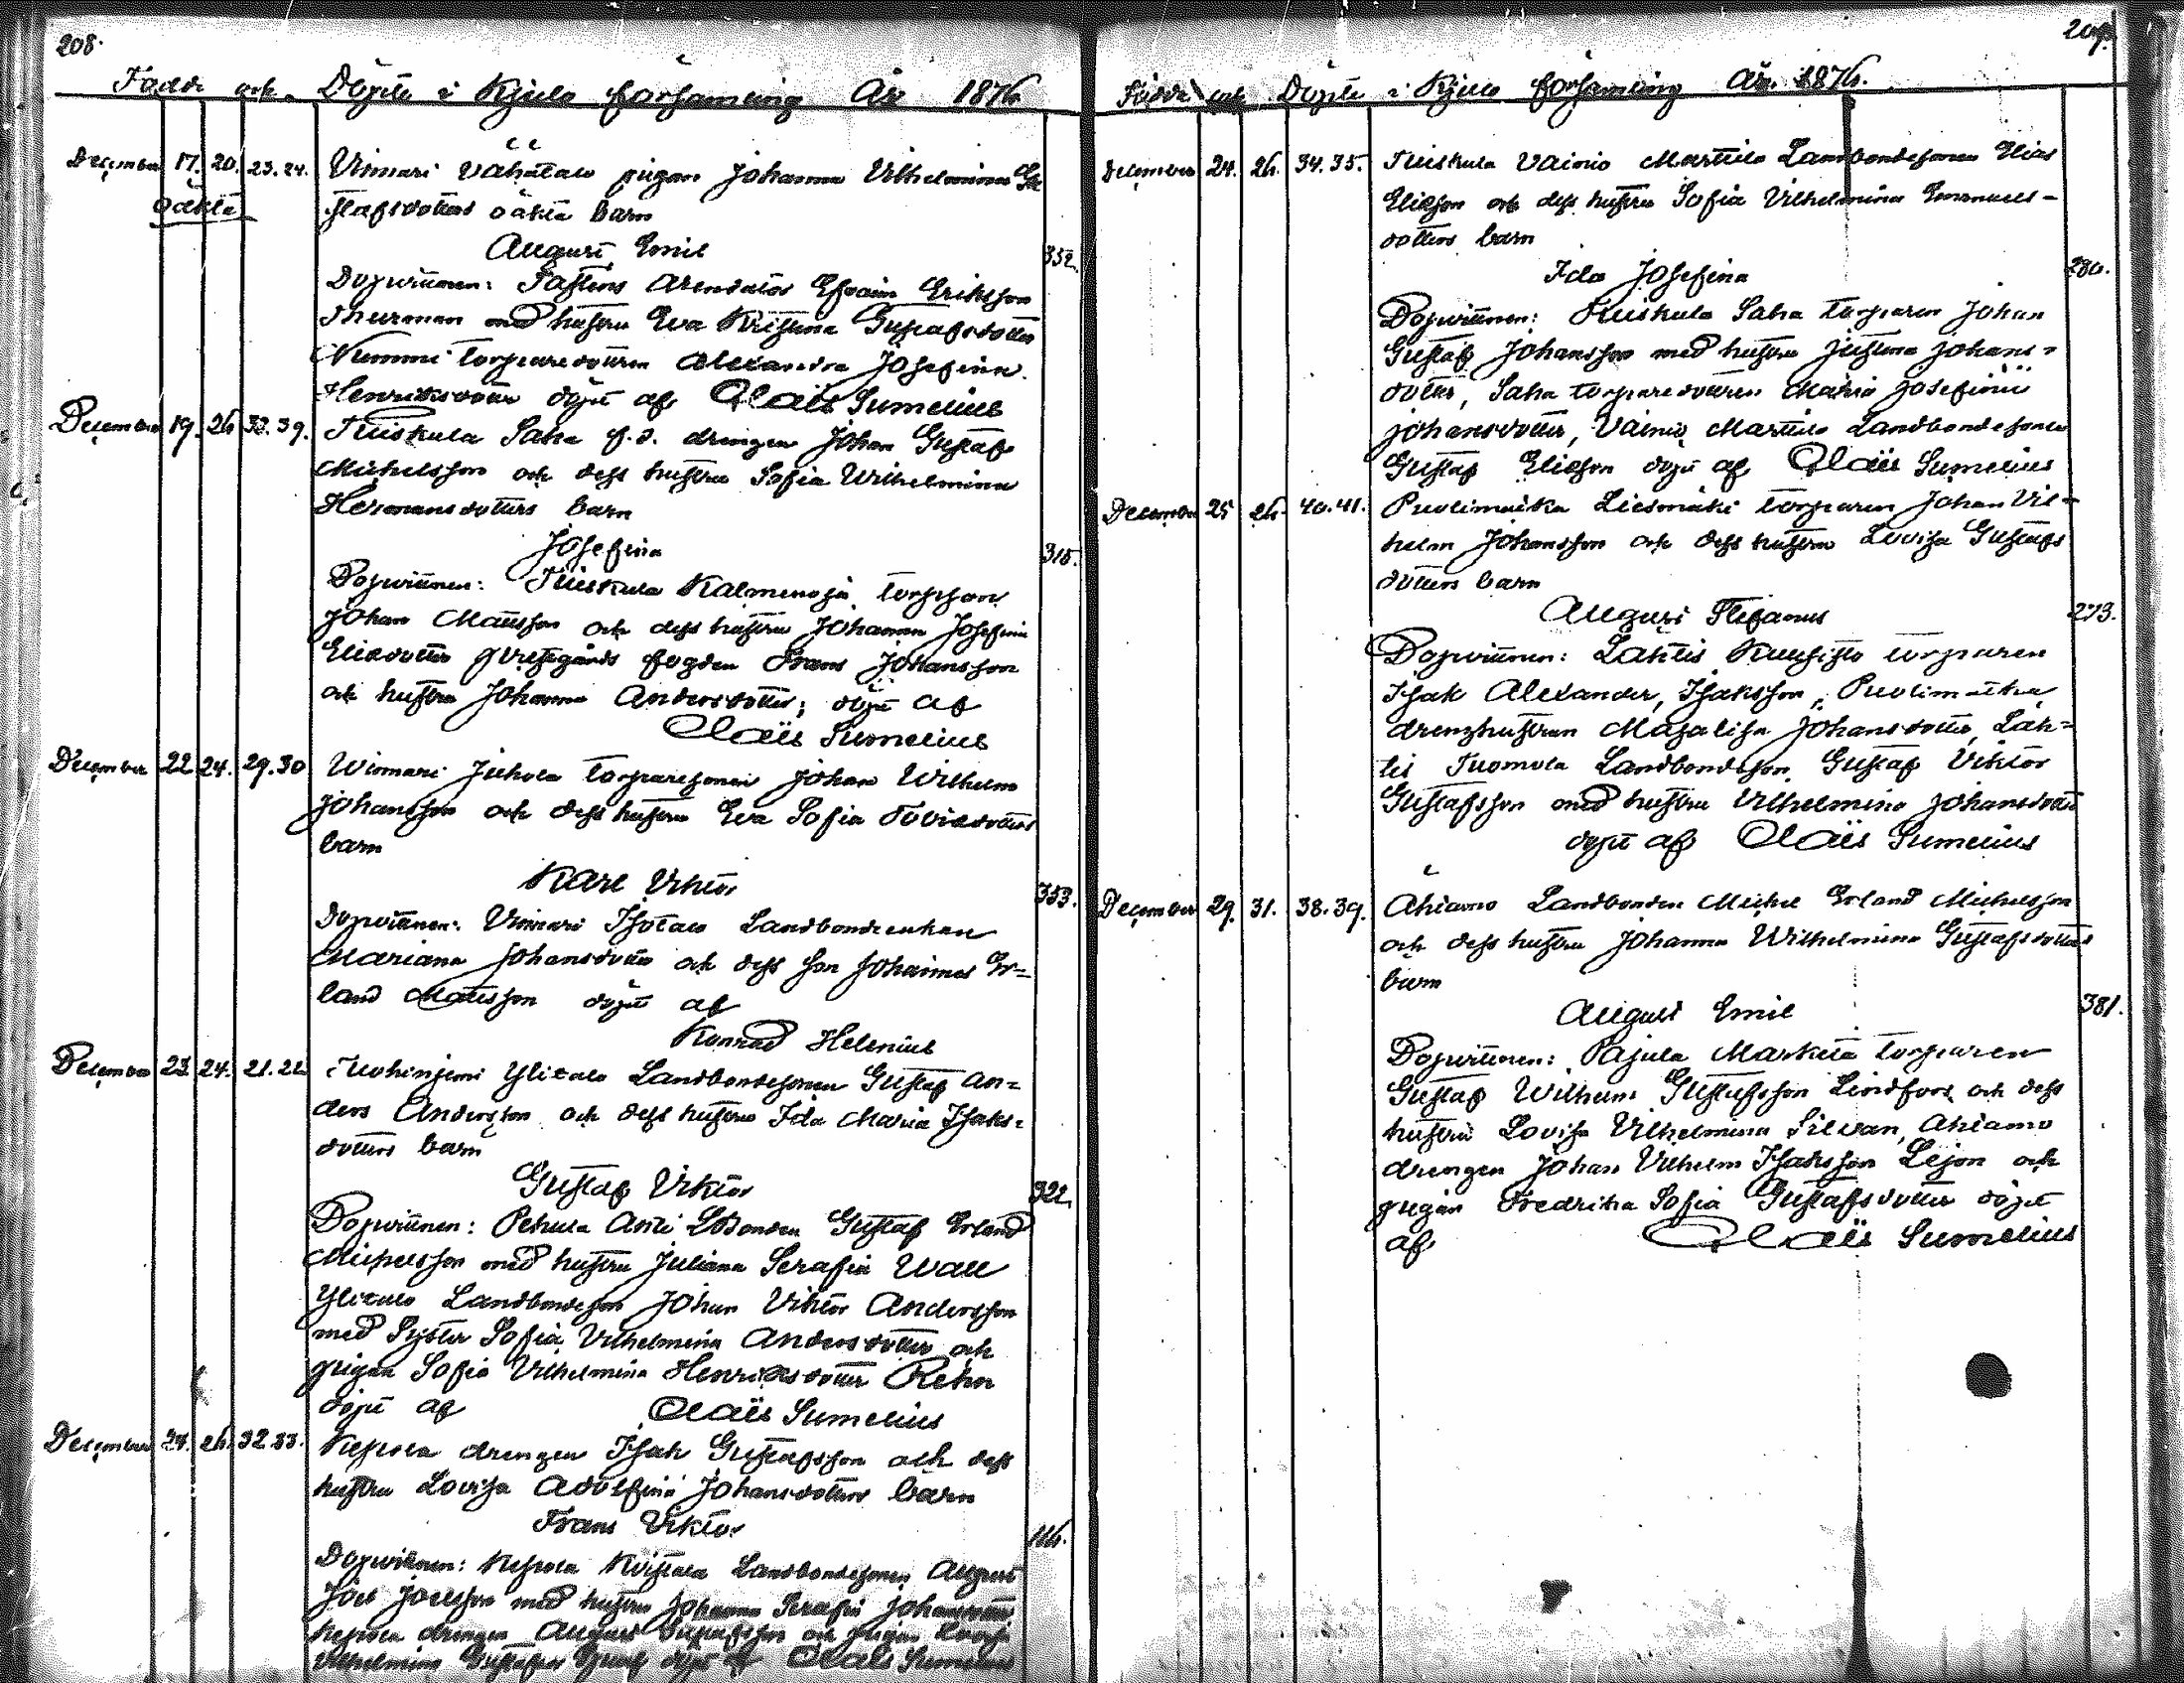 208.
Födde och Döpte i Kjulo församling År 1876.
December 17. 20. 23.24. Vinnari Vähätalo pigan Johanna Vilhelmina Gu
oäkta
stafsdotters oäkta barn
August Emil 352.
Dopvittnen: Arendator Efraim Eriksson
Thurman med hustru Eva Kristina Gustafsdotter
Nummi torparedottren Alexandra Josefina
Henriksdotter döpt af Claës Sumelius
December 19. 26 38.39. Tuiskula Saha f.d. drengen Johan Gustaf
Michelsson och dess hustru Sofia Wilhelmina
Hermansdotters barn
Josefina 315.
Dopvittnen: Tuiskula Kalmenoja
Johan Mattsson och dess hustru Johanna Josefina
Eliedotter fogden Frans Johansson
och hustru Johanna Andersdotter; döpt af
Claës Sumelius
December 22 24. 29.30 Winnari Juhola torparesonen Johan Wilhelm
Johansson och dess hustru Eva Sofia Tobiedotters
barn
Karl Viktor 353.
Dopvittnen: Vinnari Isotalo Landbondeenkan
Mariana Johansdotter och dess son Johannes Er=
land Mattsson döpt af
Konrad Helenius
December 23. 24. 21.22 Tuohiniemi Ylitalo Landbondesonen Gustaf An=
ders Andersson och dess hustru Ida Maria Isaks=
dotters barn
Gustaf Viktor 322.
Dopvittnen: Pehula Anti Gustaf Erland
Michelsson med hustru Juliana Serafia Wall
Ylitalo Landbondeson Johan Viktor Andersson
med Syster Sofia Vilhelmina Andersdotter och
pigan Sofia Vilhelmina Henriksdotter Rehn
döpt af Claës Sumelius
December 24. 26. 32.33. Kepola drengen Isak Gustafsson och dess
hustru Lovisa Adolfina Johansdotters barn
Frans Viktor 116.
Dopvittnen: Kepola Landbondesonen August
Joel Joelsson med hustru Johanna Serafia Johansdotter
Kepola drengen August Gustafsson och pigan Lovisa
Vilhelmina döpt af Claës Sumelius
209.
Födde och Döpte i Kjulo församling År. 1876.
December 24. 26. 34.35. Tuiskula Vainio Marttila Landbondesonen Elias
Eliesson och dess hustru Sofia Vilhelmina Emanuels=
dotters barn
Ida Josefina 280.
Dopvittnen: Tuiskula Saha torparen Johan
Gustaf Johansson med hustru Justina Johans=
dotter, Saha torparedottren Maria Josefina
Johansdotter, Vainio Marttila Landbondesonen
Gustaf Elieson döpt af Claës Sumelius
December 25 26. 40.41. Puolimatka Liesmäki torparen Johan Vil=
helm Johansson och dess hustru Lovisa Gustafs
dotters barn
August Stefanus 273.
Dopvittnen: Lähtis Kuusisto torparen
Isak Alexander Isaksson, Puolimatka
drenghustrun Majalisa Johansdotter, Läh=
tis Tuomola Landbondeson Gustaf Viktor
Gustafsson med hustru Vilhelmina Johansdotter
döpt af Claës Sumelius
December 29. 31. 38.39. Ahlamo Landbonden Michel Erland Michelsson
och dess hustru Johanna Wilhelmina Gustafsdotters
barn
August Emil 381.
Dopvittnen: Pajula Markula torparen
Gustaf Wilhelm Gustafsson Lindfors och dess
hustru Lovisa Vilhelmina Silvan, Ahlamo
drengen Johan Vilhelm Isaksson Lejon och
pigan Fredrika Sofia Gustafsdotter döpt
af Claës Sumelius